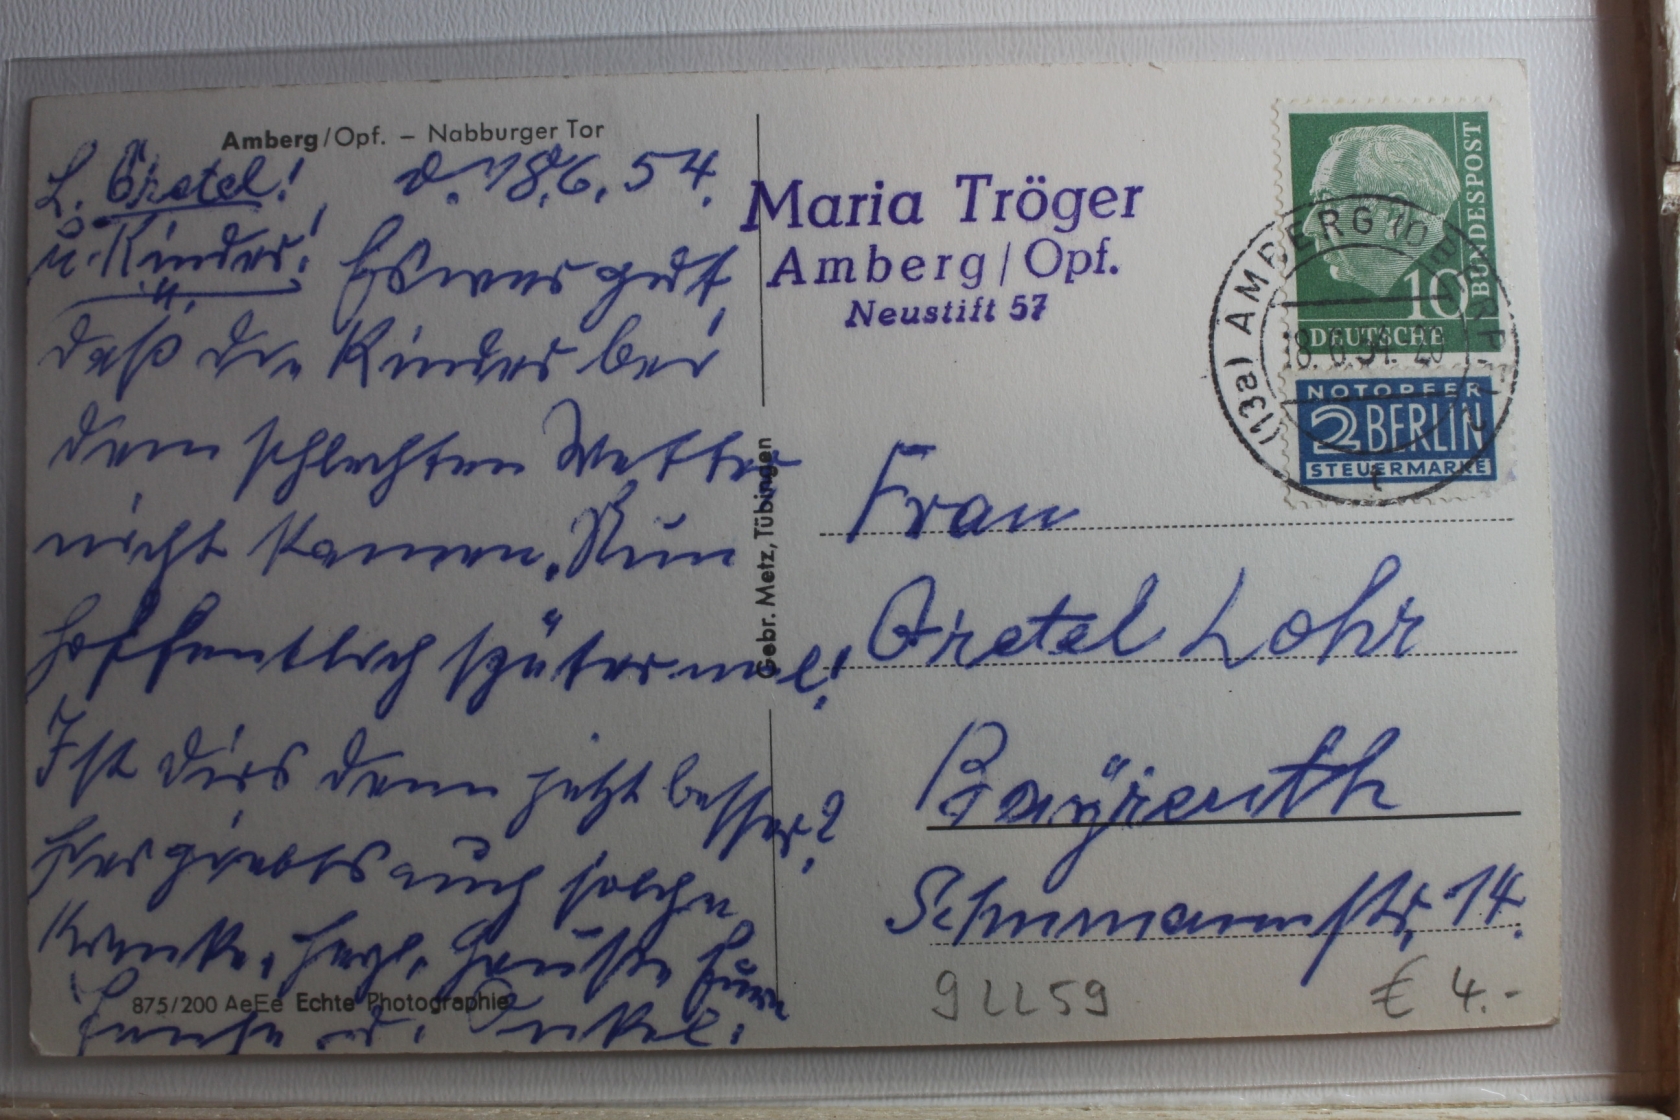 Amberg/Opf. – Nabburger Tor
L. Gretel! d. 18.6.54.
u. Kinder! Es war gut
daß die Kinder bei
dem schlechten Wetter
nicht kamen. Nun
hoffentlich später mal!
Ist dirs denn jetzt besser?
Hier giebts auch solche
Kranke. Herzl. Grüße Eure
Tante u. Onkel.
875/200 AeEe Echte Photographie
Gebr. Metz, Tübingen
Maria Tröger
Amberg/Opf.
Neustift 57
DEUTSCHE
BUNDESPOST
10
NOTOPFER
2 BERLIN
STEUERMARKE
(13a) AMBERG
18.6.54.20
t
Frau
Gretel Lohr
Bayreuth
Schumannstr. 14.
92259
€ 4.-